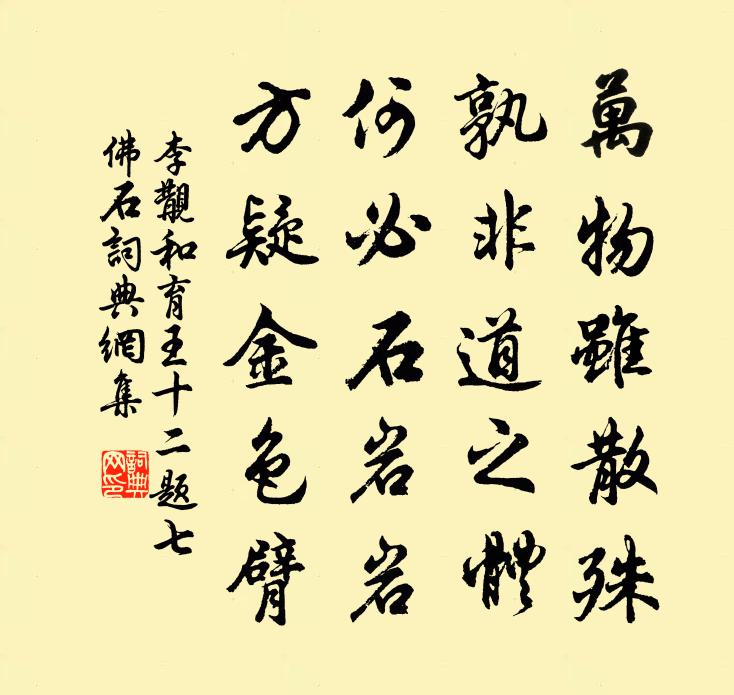 萬物雖散殊
孰非道之體
何必石岩岩
方疑金色臂
李覯和育王十二題七
佛石詞典網集
詞典网印